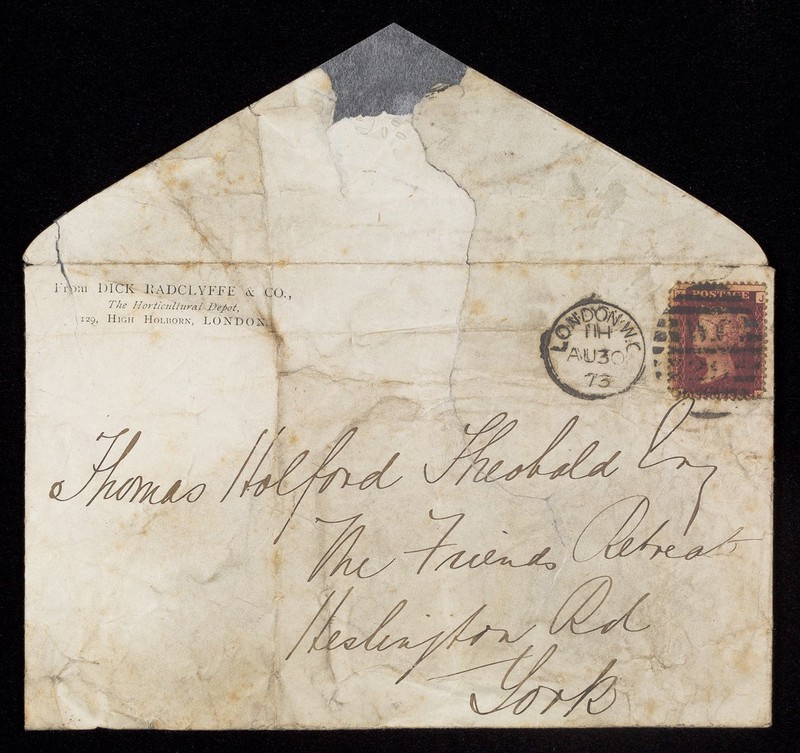 From DICK RADCLYFFE & CO.,
The Horticultural Depot,
129, HIGH HOLBORN, LONDON.
LONDON·W.C
1H
AU30
73
POSTAGE
J
Thomas Holford Theobald Esq
The Friends Retreat
Heslington Rd
York